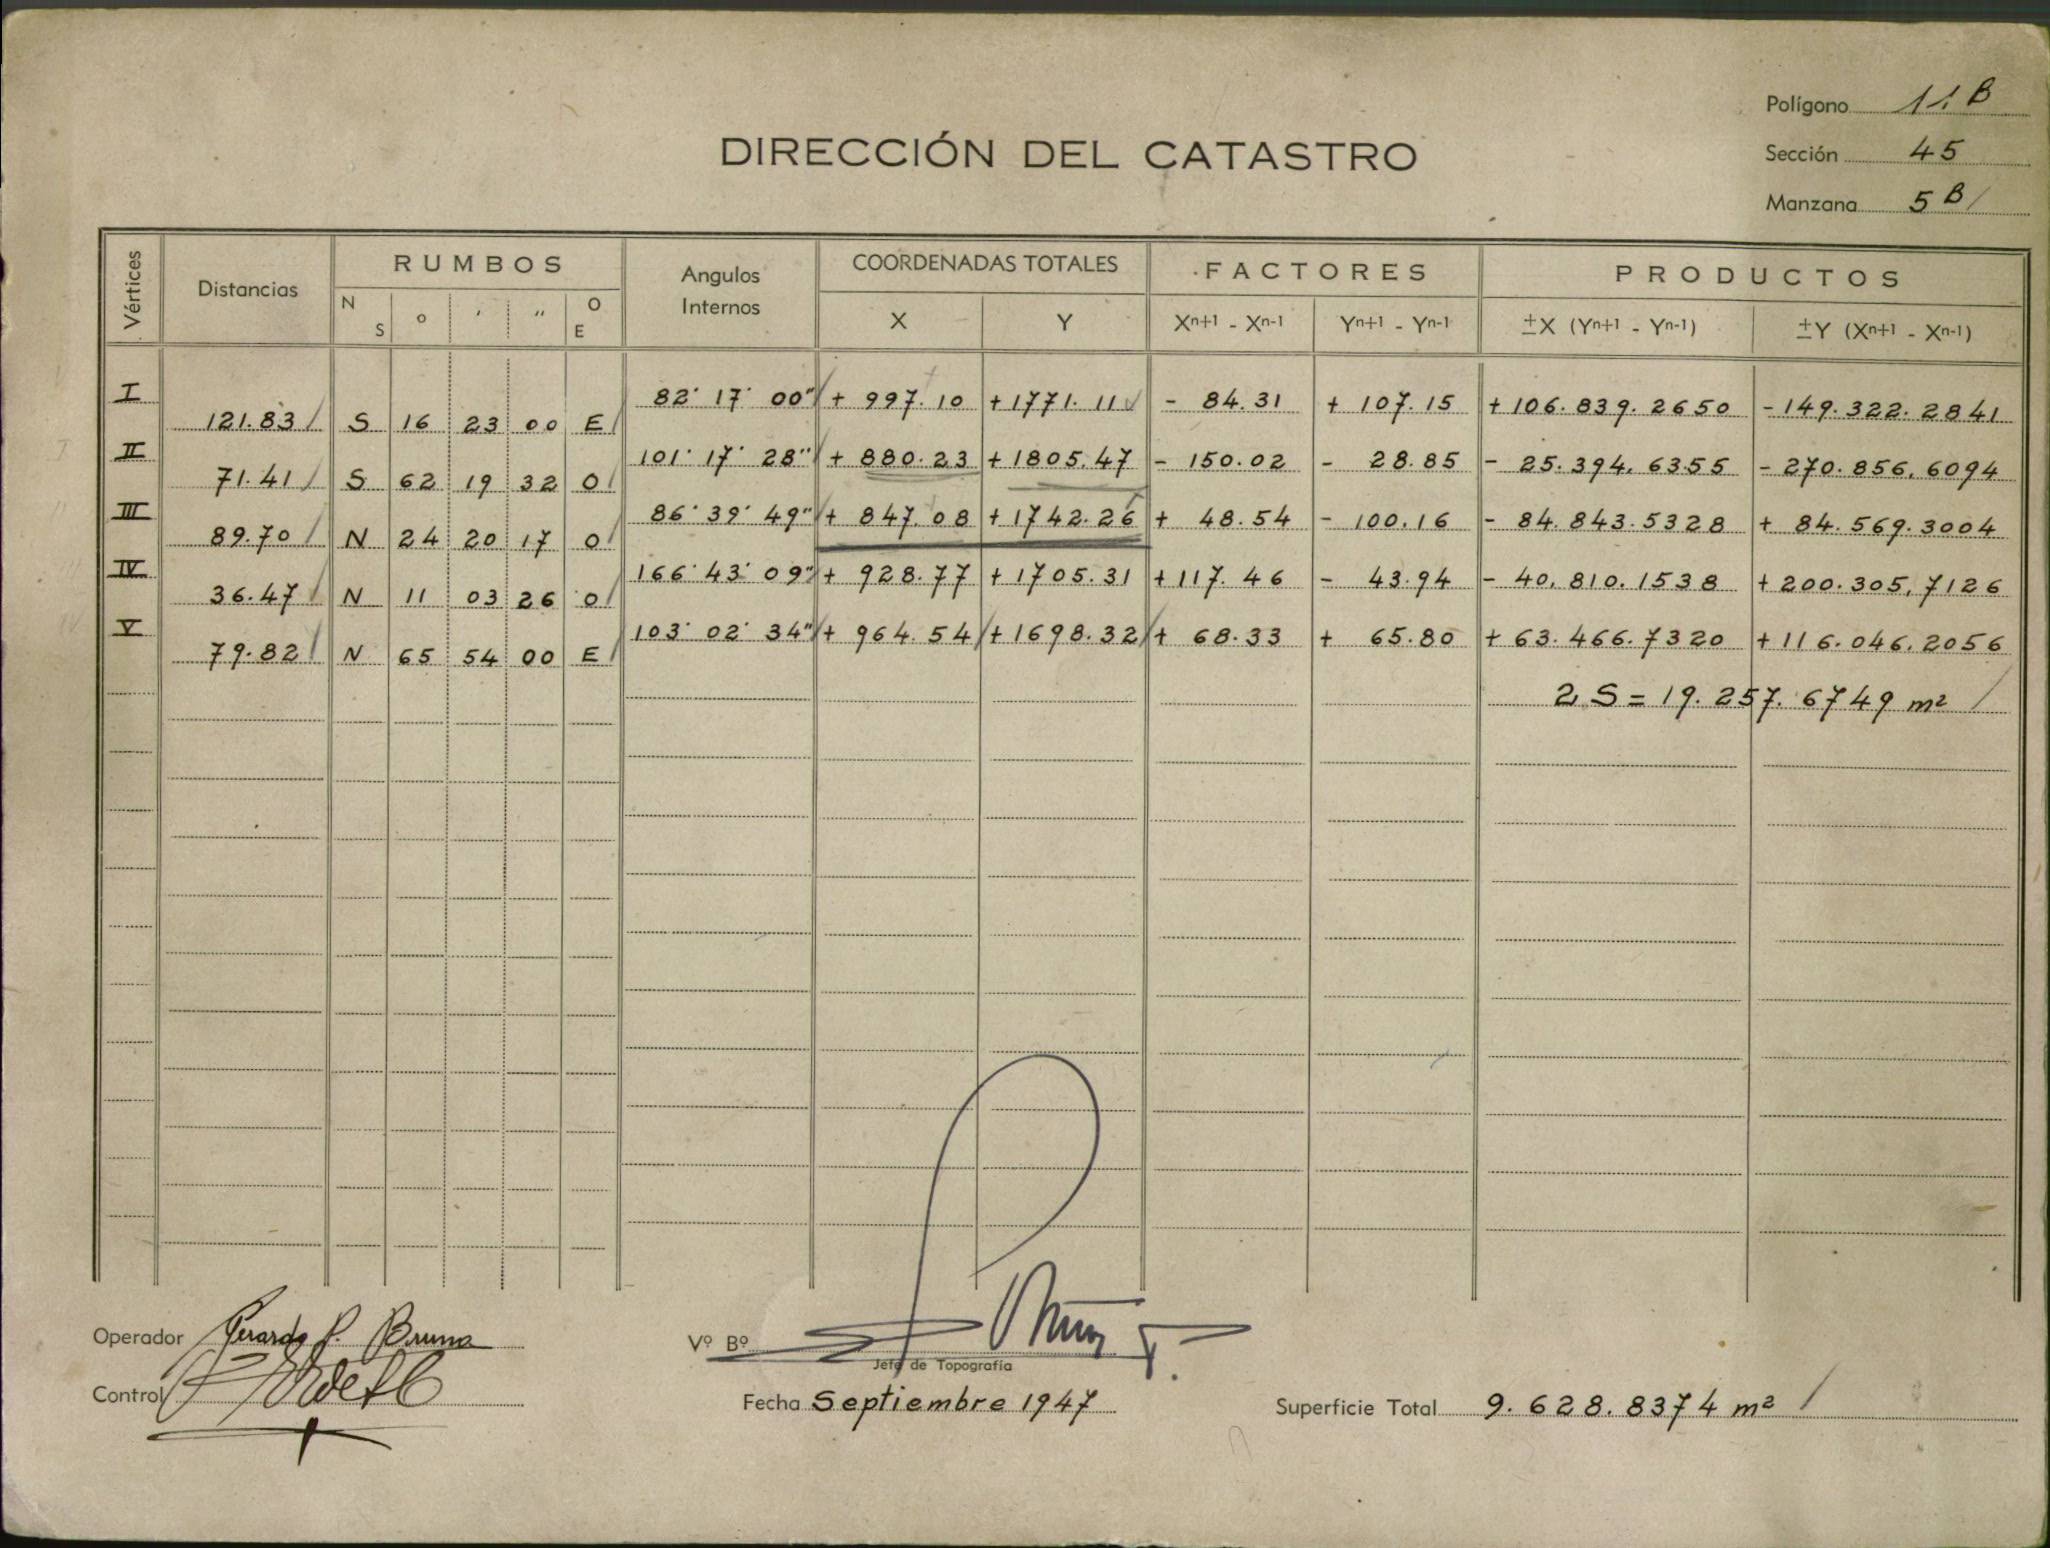 Polígono 11. B
DIRECCIÓN DEL CATASTRO
Sección 45
Manzana 5 B
Vértices Distancias RUMBOS Angulos Internos COORDENADAS TOTALES FACTORES PRODUCTOS
N S ° ' " O E X Y Xn+1 - Xn-1 Yn+1 - Yn-1 ±X (Yn+1 - Yn-1) ±Y (Xn+1 - Xn-1)
I 82° 17' 00" + 997.10 +1771.11 - 84.31 + 107.15 +106.839.2650 -149.322.2841
121.83 S 16 23 00 E
II 101° 17' 28" + 880.23 +1805.47 - 150.02 - 28.85 - 25.394.6355 - 270.856.6094
71.41 S 62 19 32 O
III 86° 39' 49" + 847.08 +1742.26 + 48.54 - 100.16 - 84.843.5328 + 84.569.3004
89.70 N 24 20 17 O
IV 166° 43' 09" + 928.77 + 1705.31 +117.46 - 43.94 - 40.810.1538 +200.305,7126
36.47 N 11 03 26 O
V 103° 02' 34" + 964.54 +1698.32 + 68.33 + 65.80 + 63.466.7320 +116.046.2056
79.82 N 65 54 00 E
2 S = 19.257.6749 m²
Operador Gerardo P. Bruna
Vº Bº
Jefe de Topografía
Control
Fecha Septiembre 1947
Superficie Total 9.628.8374 m²